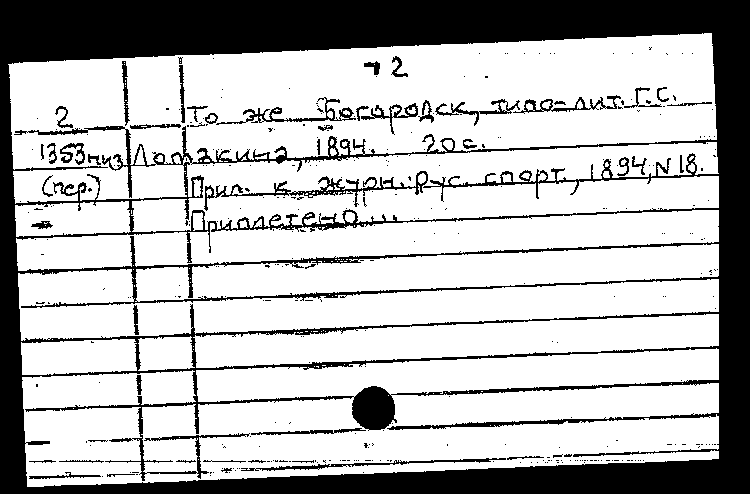 72
2 То же Богородск, типо-лит. Г.С.
1353низ Лопакина, 1894. 20с.
(пер.) Прил. к журн.: Рус. спорт., 1894, N 18.
Приплетено...